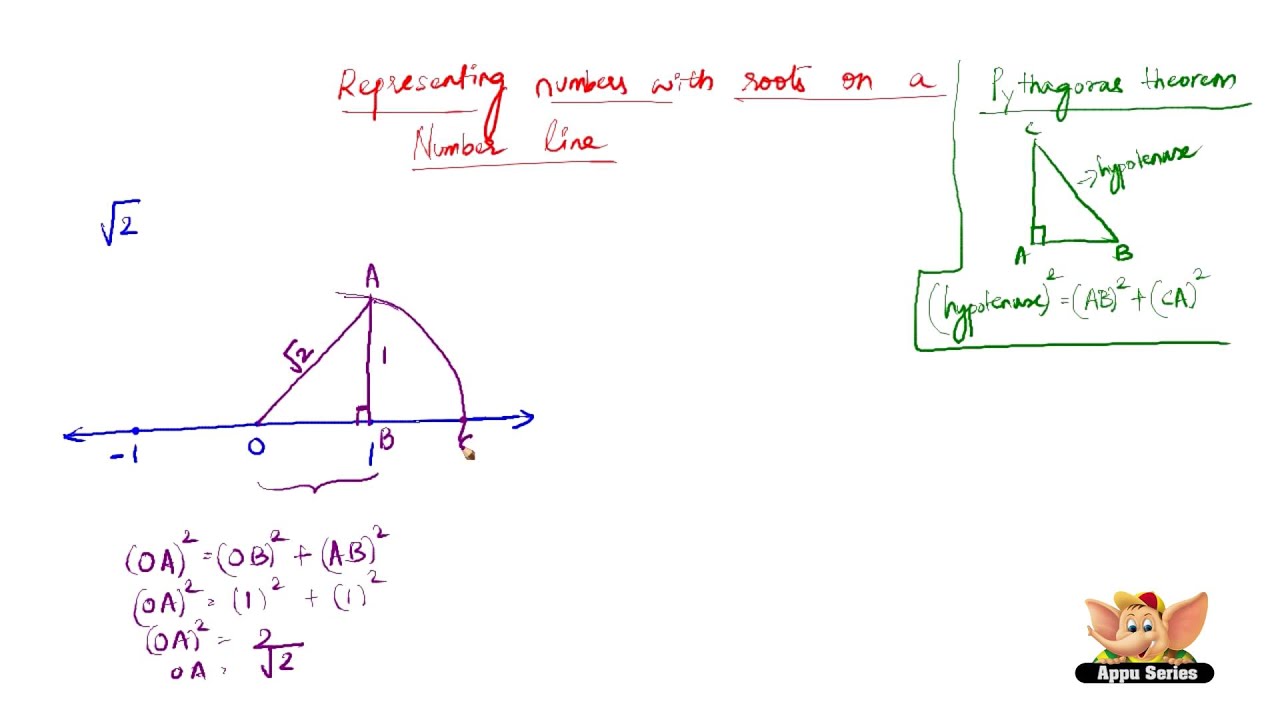 Representing numbers with roots on a
Number line
Pythagoras theorem
C
hypotenuse
A
B
(hypotenuse)² = (AB)² + (CA)²
√2
A
√2
1
-1
0
1
B
C
(OA)² = (OB)² + (AB)²
(OA)² = (1)² + (1)²
(OA)² = 2
OA = √2
Appu Series